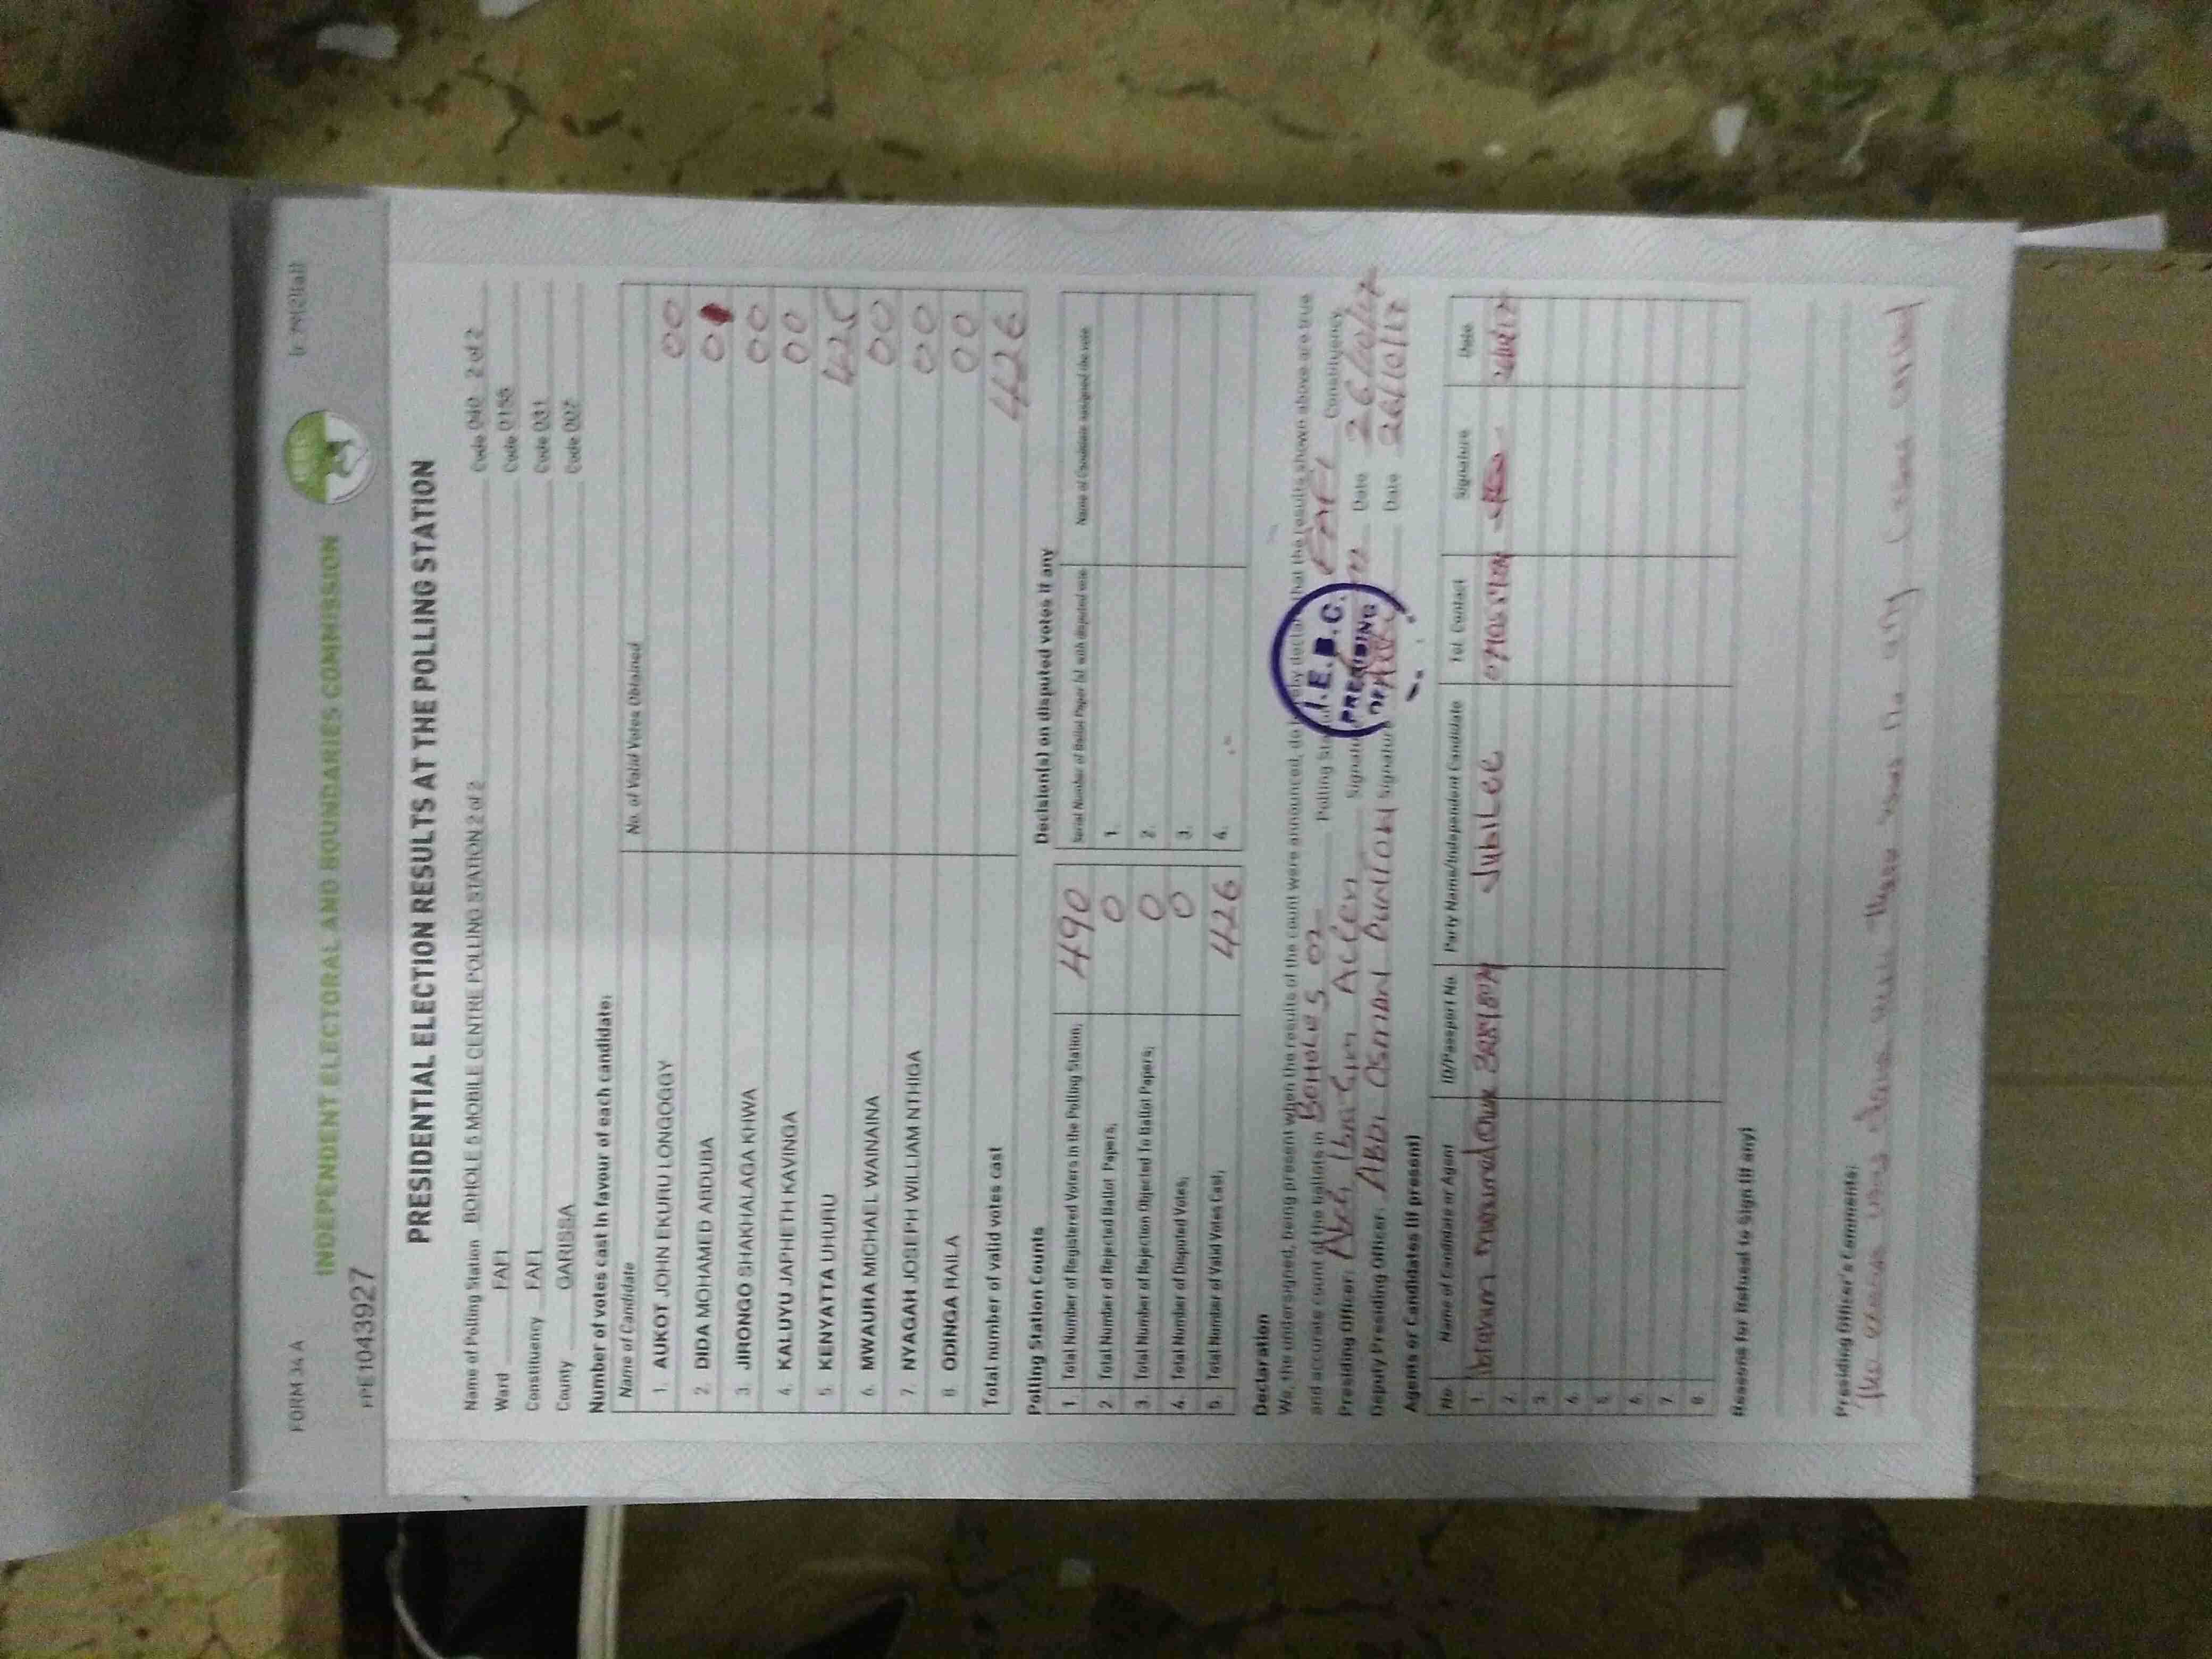 FORM 34 A
INDEPENDENT ELECTORAL AND BOUNDARIES COMMISSION
IEBC
PRESIDENTIAL ELECTION RESULTS AT THE POLLING STATION
Name of Polling Station BOHOLE 5 MOBILE CENTRE POLLING STATION 2 of 2 Code 040 2 of 2
Ward FAFI Code 0155
Constituency FAFI Code 031
County GARISSA Code 007
Number of votes cast in favour of each candidate:
Name of Candidate No. of Valid Votes Obtained
1. AUKOT JOHN EKURU LONGOGGY 00
2. DIDA MOHAMED ABDUBA 01
3. JIRONGO SHAKHALAGA KHWA 00
4. KALUYU JAPHETH KAVINGA 00
5. KENYATTA UHURU 425
6. MWAURA MICHAEL WAINAINA 00
7. NYAGAH JOSEPH WILLIAM NTHIGA 00
8. ODINGA RAILA 00
Total number of valid votes cast 426
Polling Station Counts
1. Total Number of Registered Voters in the Polling Station; 490
2. Total Number of Rejected Ballot Papers; 0
3. Total Number of Rejection Objected To Ballot Papers; 0
4. Total Number of Disputed Votes; 0
5. Total Number of Valid Votes Cast; 426
Decision(s) on disputed votes if any
Serial Number of Ballot Paper (s) with disputed vote Name of Candidate assigned the vote
1.
2.
3.
4.
Declaration
We, the undersigned, being present when the results of the count were announced, do hereby declare that the results shown above are true
and accurate count of the ballots in BOHOLE 5 02 Polling FAFI Constituency
Presiding Officer: Date 26/10/17
Deputy Presiding Officer: ABDI OSMAN Signature Date 26/10/17
I.E.B.C.
PRESIDING
Agents or Candidates (if present)
No Name of Candidate or Agent ID/Passport No. Party Name/Independent Candidate Tel. Contact Signature Date
1. Jubilee
2.
3.
4.
5.
6.
7.
8.
Reasons for Refusal to Sign (if any)
Presiding Officer's Comments: